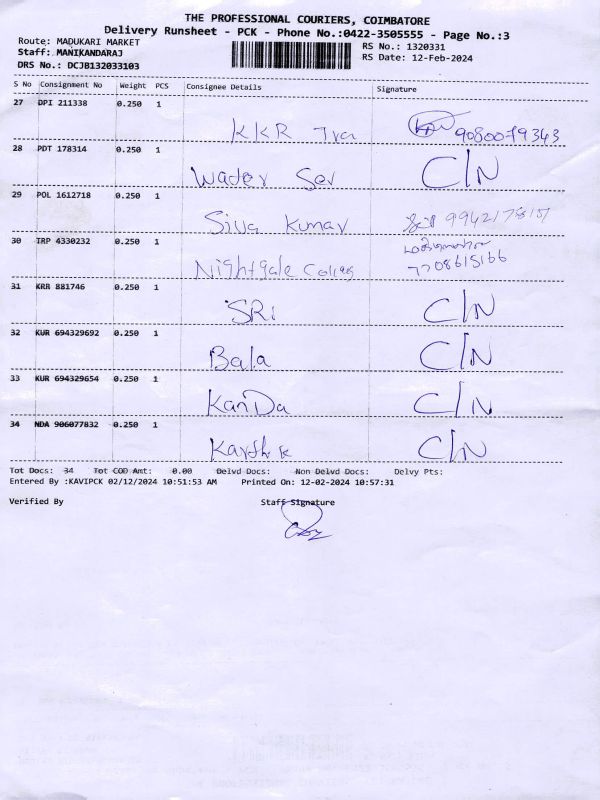 THE PROFESSIONAL COURIERS, COIMBATORE
Delivery Runsheet - PCK - Phone No.:0422-3505555 - Page No.:3
Route: MADUKARI MARKET
RS No.: 1320331
Staff: MANIKANDARAJ
RS Date: 12-Feb-2024
DRS No.: DCJB132033103
S No Consignment No Weight PCS Consignee Details Signature
27 DPI 211338 0.250 1
KKR Tra 9080079343
28 PDT 178314 0.250 1
Water Ser C/N
29 POL 1612718 0.250 1
Siva Kumar 9942178157
30 TRP 4330232 0.250 1
Nightgale Colleg 7708615166
31 KRR 881746 0.250 1
SRi C/N
32 KUR 694329692 0.250 1
Bala C/N
33 KUR 694329654 0.250 1
KanDa C/N
34 NDA 906077832 0.250 1
Karthik C/N
Tot Docs: 34 Tot COD Amt: 0.00 Delvd Docs: Non Delvd Docs: Delvy Pts:
Entered By :KAVIPCK 02/12/2024 10:51:53 AM Printed On: 12-02-2024 10:57:31
Verified By Staff Signature